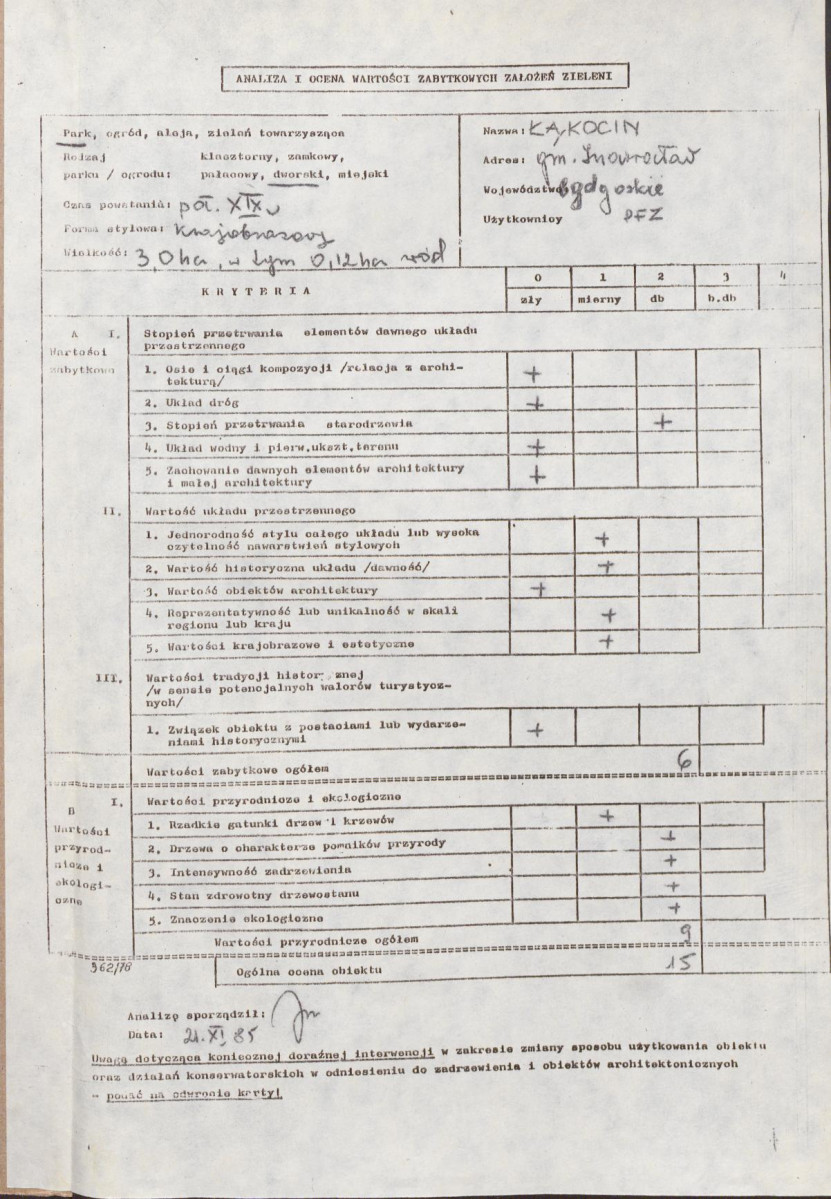 ANALIZA I OCENA WARTOŚCI ZABYTKOWYCH ZAŁOŻEŃ ZIELENI
Park, ogród, aleja, zieleń towarzysząca
Rodzaj klasztorny, zamkowy,
parku / ogrodu: pałacowy, dworski, miejski
Czas powstania: poł. XIX
Forma stylowa: krajobrazowy
Wielkość: 3,0 ha, w tym 0,12 ha wód
Nazwa: ŁĄKOCIN
Adres: gm. Inowrocław
Województwo: bydgoskie
Użytkownicy PFZ
KRYTERIA
0 1 2 3 4
zły mierny db b.db
A I. Stopień przetrwania elementów dawnego układu
Wartości przestrzennego
zabytkowe
1. Osie i ciągi kompozycji /relacja z archi-
tekturą/ +
2. Układ dróg +
3. Stopień przetrwania starodrzewia +
4. Układ wodny i pierw.ukszt.terenu +
5. Zachowanie dawnych elementów architektury
i małej architektury +
II. Wartość układu przestrzennego
1. Jednorodność stylu całego układu lub wysoka
czytelność nawarstwień stylowych +
2. Wartość historyczna układu /dawność/ +
3. Wartość obiektów architektury +
4. Reprezentatywność lub unikalność w skali
regionu lub kraju +
5. Wartości krajobrazowe i estetyczne +
III. Wartości tradycji historycznej
/w sensie potencjalnych walorów turystycz-
nych/
1. Związek obiektu z postaciami lub wydarze-
niami historycznymi +
Wartości zabytkowe ogółem 6
B I. Wartości przyrodnicze i ekologiczne
Wartości
przyrod-
nicze i
ekologi-
czne
1. Rzadkie gatunki drzew i krzewów +
2. Drzewa o charakterze pomników przyrody +
3. Intensywność zadrzewienia +
4. Stan zdrowotny drzewostanu +
5. Znaczenie ekologiczne +
Wartości przyrodnicze ogółem 9
962/78
Ogólna ocena obiektu 15
Analizę sporządził:
Data: 21.XI.85
Uwagę dotycząca koniecznej doraźnej interwencji w zakresie zmiany sposobu użytkowania obiektu
oraz działań konserwatorskich w odniesieniu do zadrzewienia i obiektów architektonicznych
- podać na odwrocie karty!